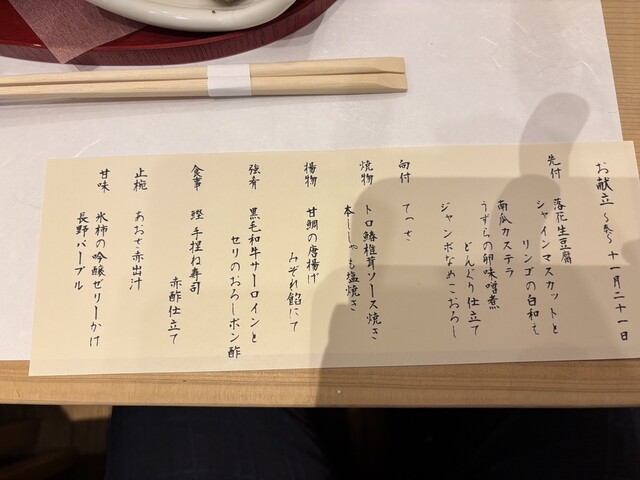 お献立 ～冬～ 十一月二十一日
先付 落花生豆腐
シャインマスカットと
リンゴの白和え
南瓜カステラ
うずらの卵味噌煮
どんぐり仕立て
ジャンボなめこおろし
向付 てっさ
焼物 トロ鰆椎茸ソース焼き
本ししゃも塩焼き
揚物 甘鯛の唐揚げ
みぞれ餡にて
強肴 黒毛和牛サーロインと
セリのおろしポン酢
食事 鰹 手捏ね寿司
赤酢仕立て
止椀 あおさ赤出汁
甘味 氷柿の吟醸ゼリーかけ
長野パープル